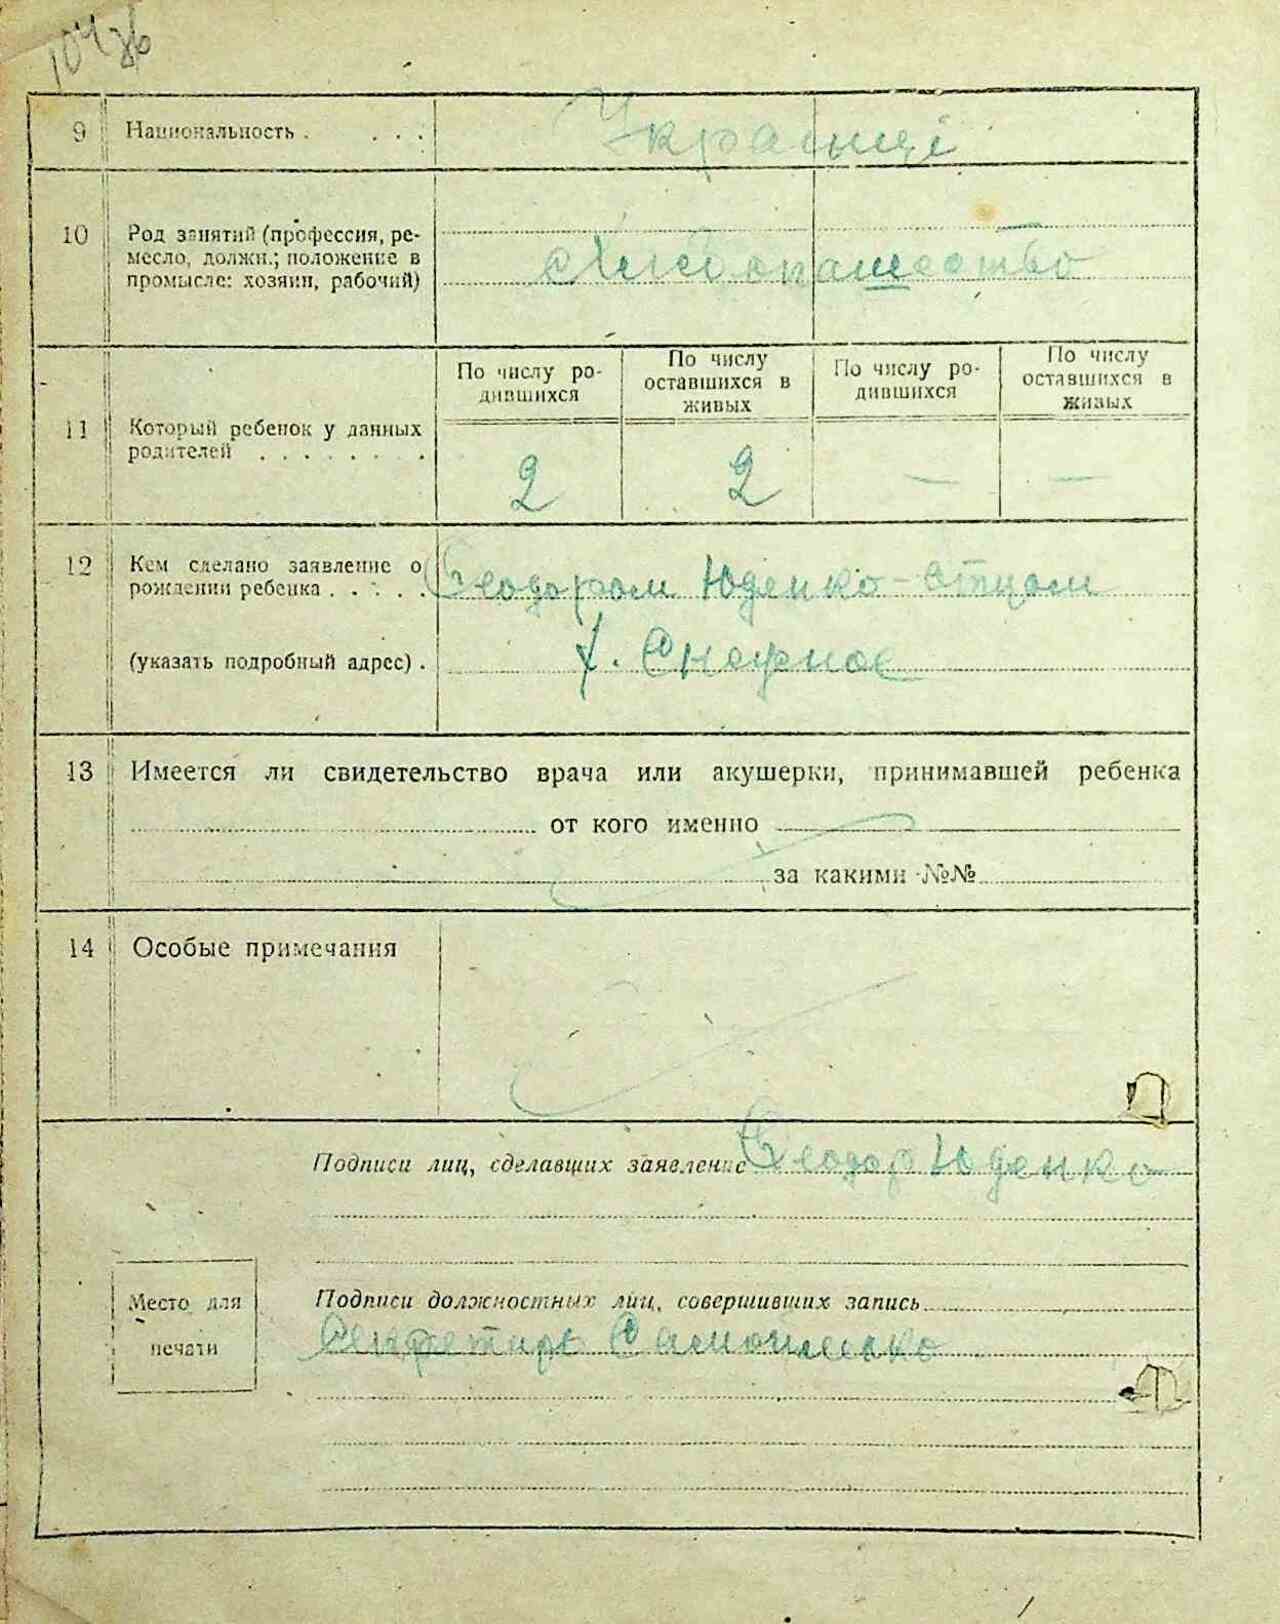 9 Национальность . . . . Украинці
10 Род занятий (профессия, ре-
месло, должн.; положение в
промысле: хозяин, рабочий) Хлебопашество
По числу ро-
дившихся
По числу
оставшихся в
живых
По числу ро-
дившихся
По числу
оставшихся в
живых
11 Который ребенок у данных
родителей . . . . . . . 2 2 — —
12 Кем сделано заявление о
рождении ребенка . . . . . Феодором Юденко - отцом
(указать подробный адрес) . х. Снежное
13 Имеется ли свидетельство врача или акушерки, принимавшей ребенка
от кого именно
за какими №№
14 Особые примечания
Подписи лиц, сделавших заявление Феодор Юденко
Место для
печати
Подписи должностных лиц, совершивших запись
Секретарь Самойленко